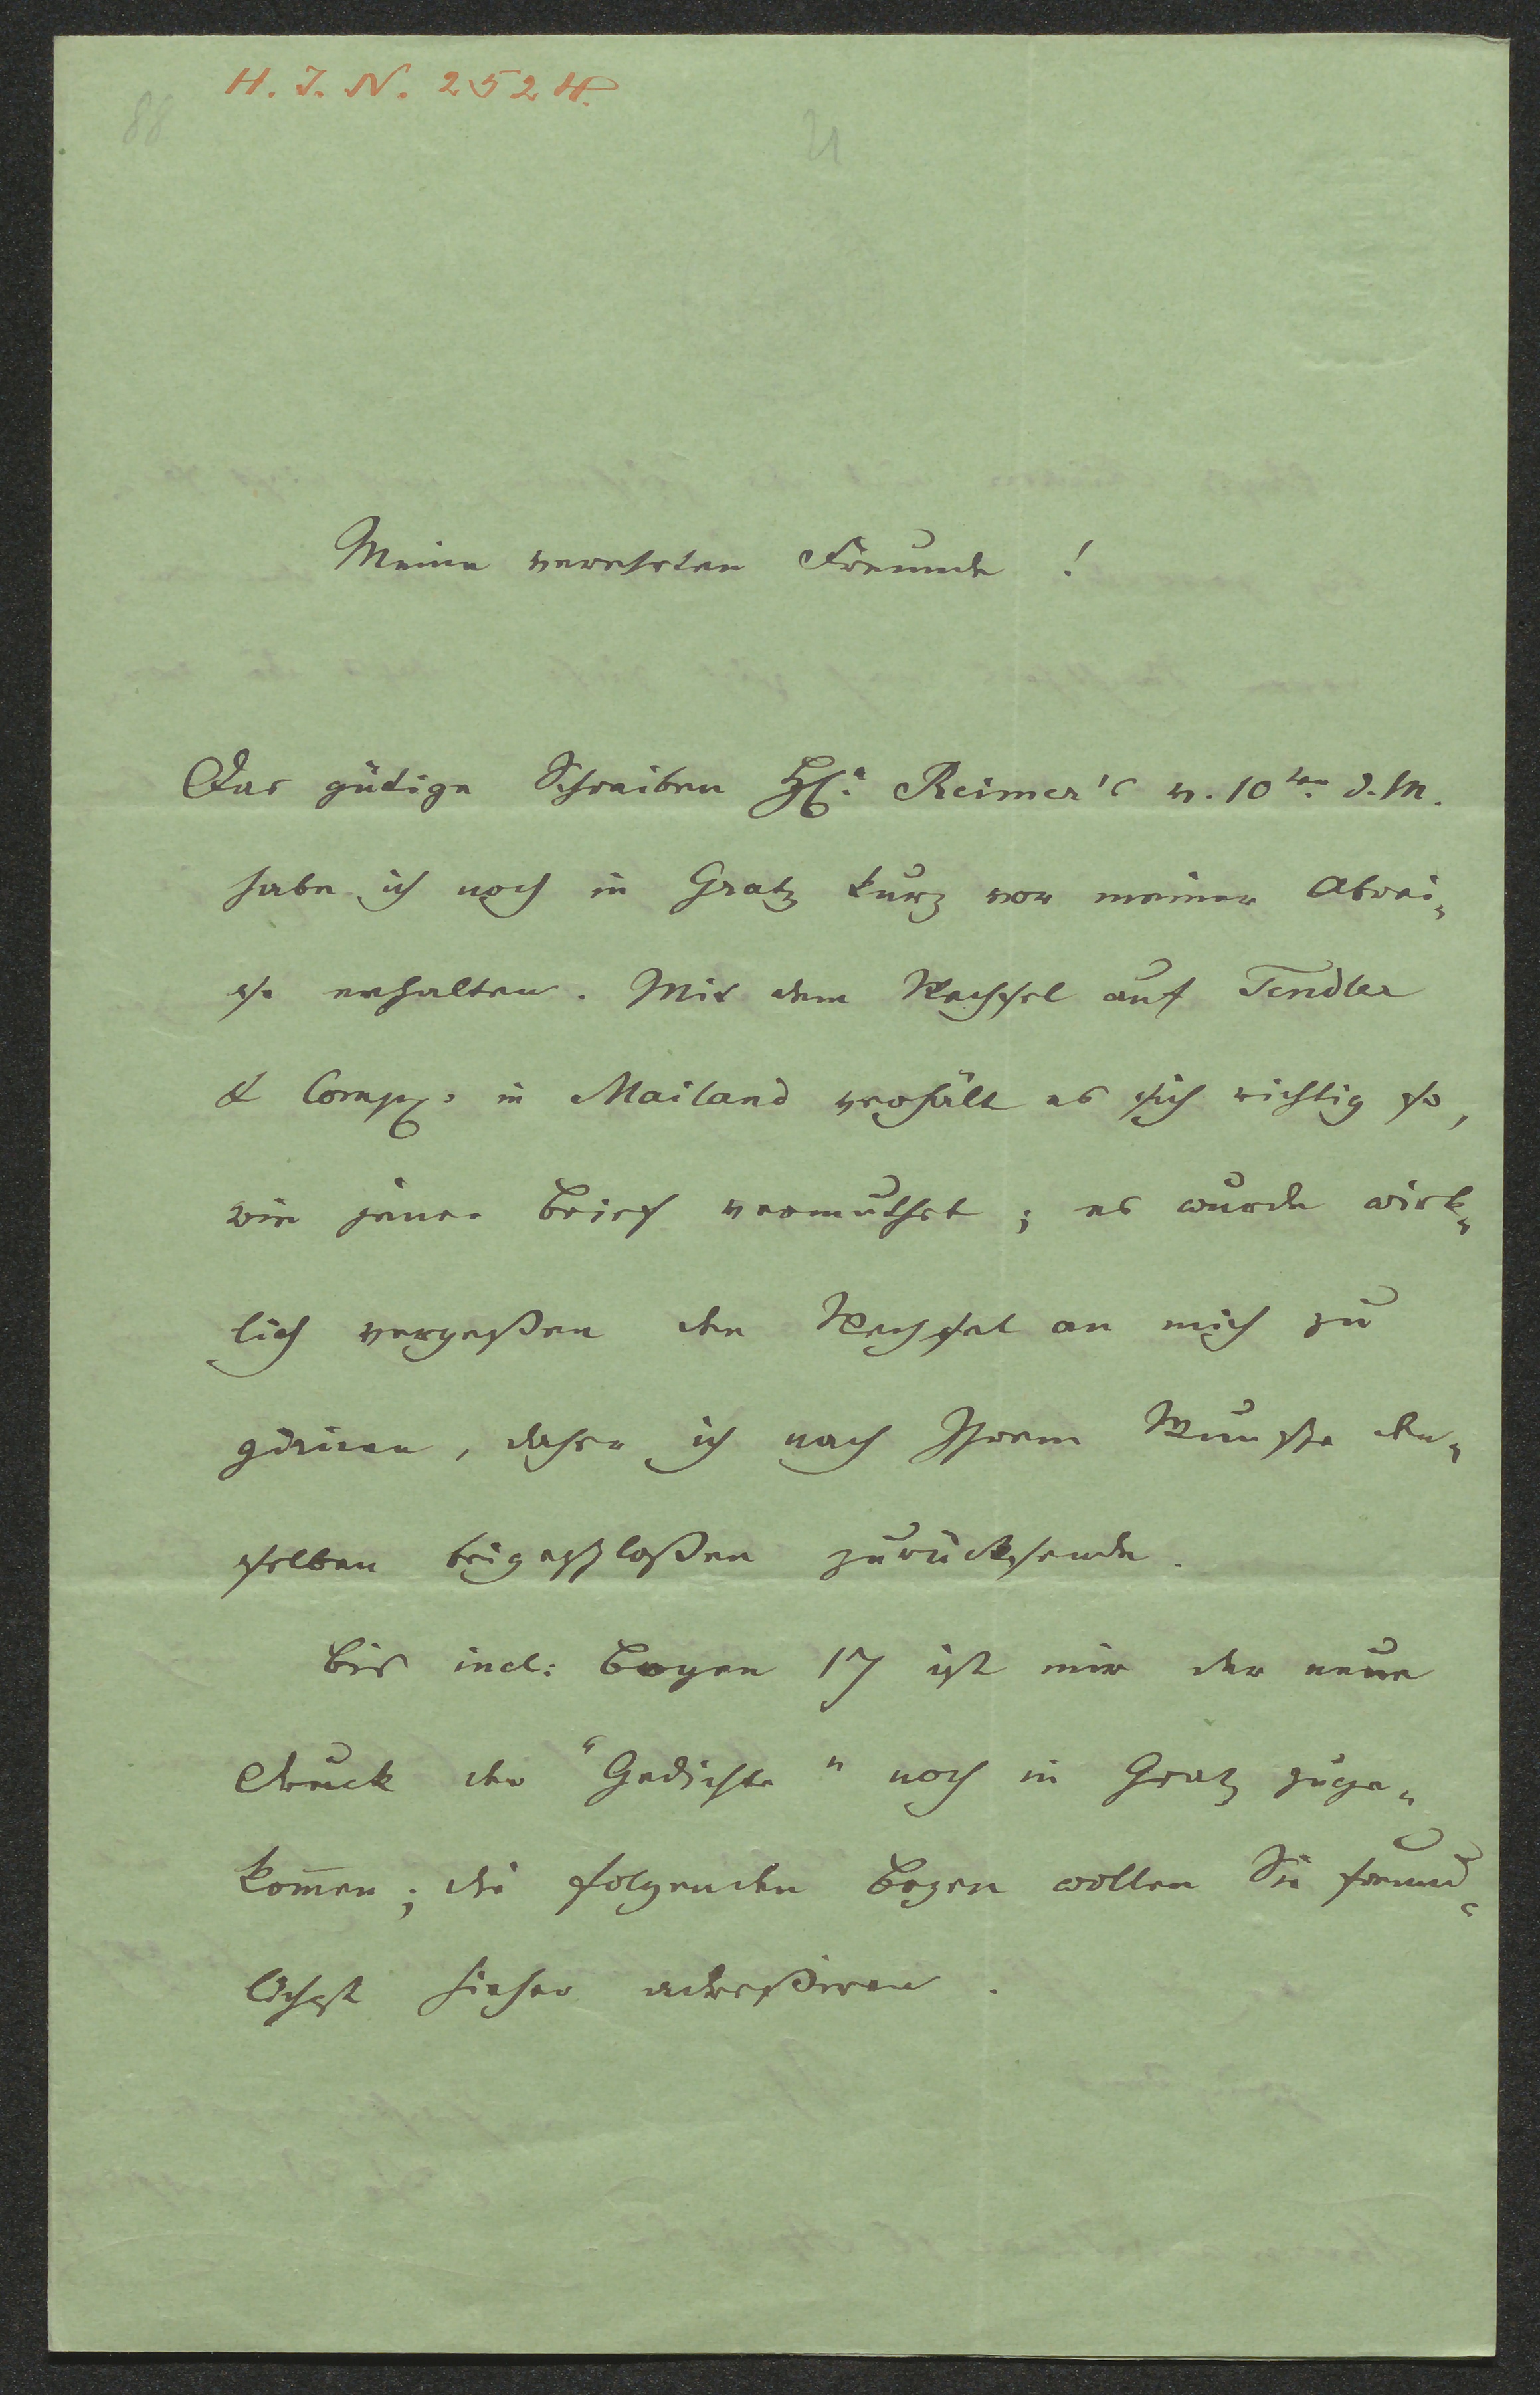 H. I. N. 2524.
88
21
Meine verehrten Freunde !
Das gütige Schreiben H. Reimer's v. 10ten d. M.
habe ich noch in Gratz kurz vor meiner Abrei„
se erhalten. Mit dem Wechsel auf Tendler
& Comp. in Mailand verhält es sich richtig so,
wie jener Brief vermuthet ; es wurde wirk„
lich vergeßen den Wechsel an mich zu
giriren , daher ich nach Ihrem Wunsche den„
selben beigeschloßen zurücksende .
Bis incl: Bogen 17 ist mir der neue
Druck der "Gedichte" noch in Gratz zuge„
kom̄en ; die folgenden Bogen wollen Sie freund„
lichst hieher adreßiren .